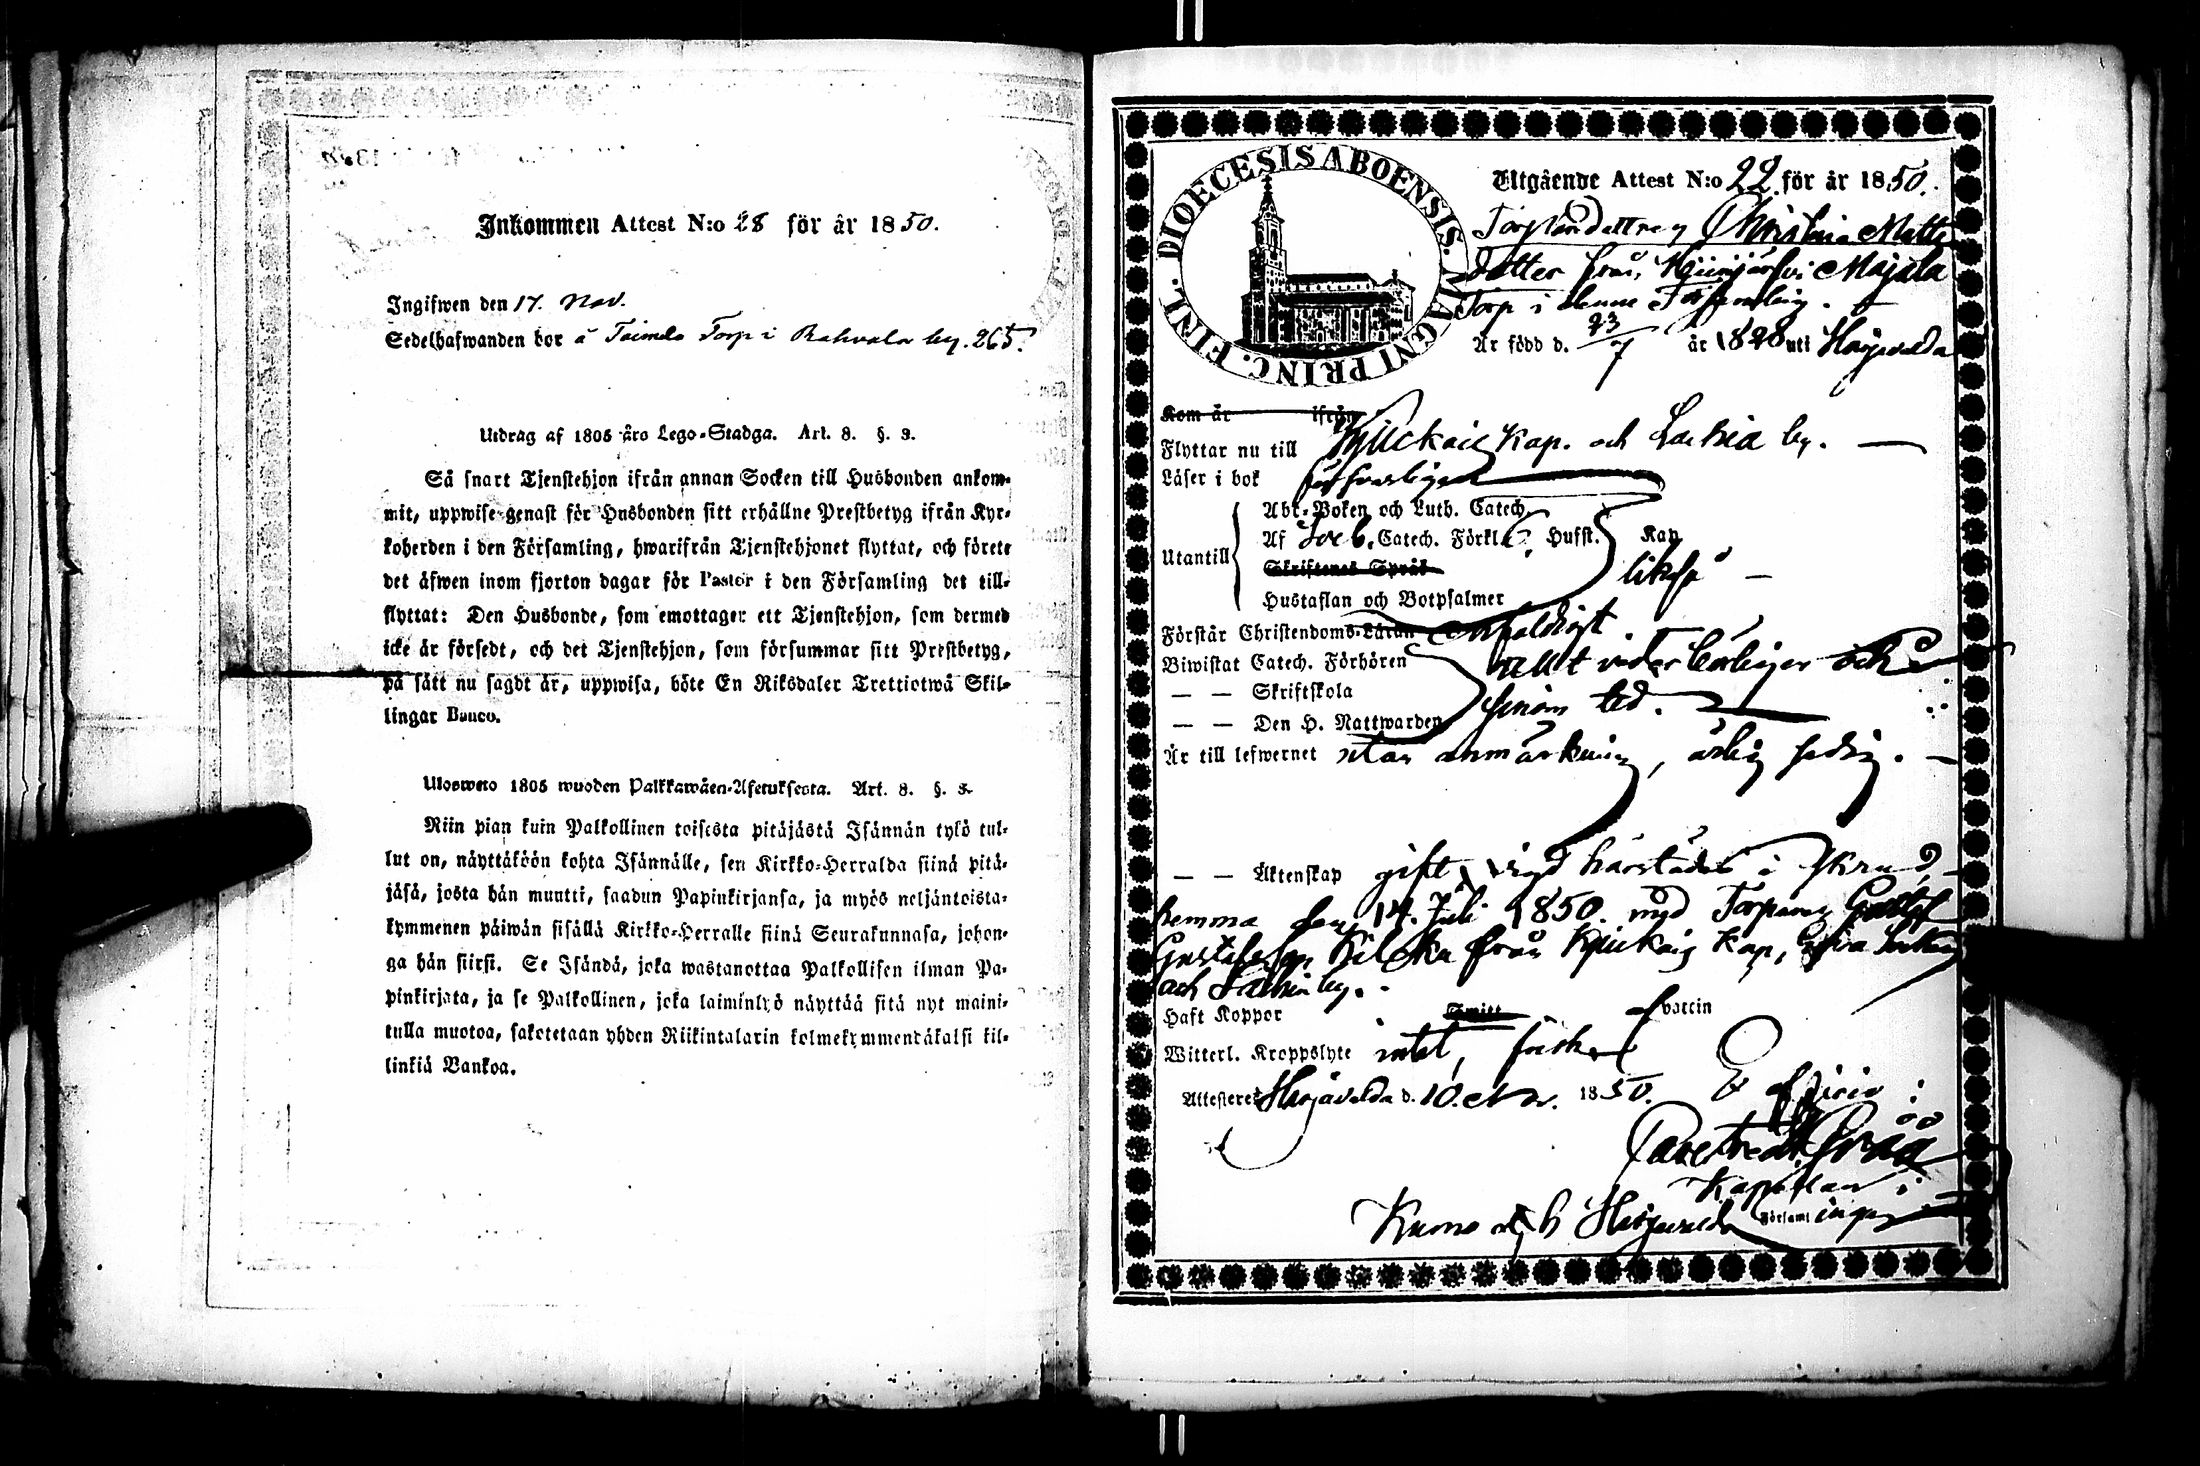 Inkommen Attest N:o 28 för år 1850.
Ingifwen den 17. Nov.
Sedelhafwanden bor å Torp i by. 265.
Utdrag af 1805 års Lego-Stadga. Art. 8. §. 3.
Så snart Tjenstehjon ifrån annan Socken till Husbonden ankom-
mit, uppwise genast för Husbonden sitt erhållne Prestbetyg ifrån Kyr-
koherden i den Församling, hwarifrån Tjenstehjonet flyttat, och förete
det äfwen inom fjorton dagar för Pastor i den Församling det till-
flyttat: Den Husbonde, som emottager ett Tjenstehjon, som dermed
icke är försedt, och det Tjenstehjon, som försummar sitt Prestbetyg,
på sätt nu sagdt är, uppwisa, böte En Riksdaler Trettiotwå Skil-
lingar Banco.
Uloswèto 1805 wuoden Palkkawäen-Asetuksesta. Art. 8. §. 3.
Niin pian kuin Palkollinen toisesta pitäjästä Isännän työ tul-
lut on, näyttäköön kohta Isännälle, sen Kirkko-Herralda siinä pitä-
jäsä, josta hän muutti, saadun Papinkirjansa, ja myös neljäntoista-
kymmenen päiwän sisällä Kirkko-Herralle siinä Seurakunnasa, johon-
ga hän siirsi. Se Isändä, joka wastanottaa Palkollisen ilman Pa-
pinkirjata, ja se Palkollinen, joka laiminlyö näyttää sitä nyt maini-
tulla muotoa, sakotetaan yhden Riikintalarin kolmekymmentäkaksi kil-
linkiä Bankoa.
DIOECESIS ABOENSIS. MAGNI PRINC. FINL.
Utgående Attest N:o 22 för år 1850.
Torpardottren Christina Matts
dotter från Majala
Torp i denne Församling.
Är född d. 23/7 år 1828 uti Harjavalda
Kom år ifrån
Flyttar nu till Kap. och by.
Läser i bok försvarligen
Utantill
Abc-Boken och Luth. Catech.
Af Sveb. Catech. Förkl. Husft. Kap
Skriftenes Språk
likaså
Hustaflan och Botpsalmer
Förstår Christendoms-Läran enfaldigt.
Biwistat Catech. Förhören allt vederbörligen och
— — Skriftskola
sinom tid.
— — Den H. Nattwarden
Är till lefwernet utan anmärkning, ärlig sedig.
— — Äktenskap gift, vigd härstädes i
hemma den 14. Juli 1850. med Torparen Gustaf
Gustafsson från Kap,
och by.
Haft Koppor Smitt vaccin
Witterl. Kroppslyte intet, frisk
Attesteres Harjavalda d. 10. Nov. 1850. Ex officio:
Kapellan i
Kumo och Harjavalda Församlingar